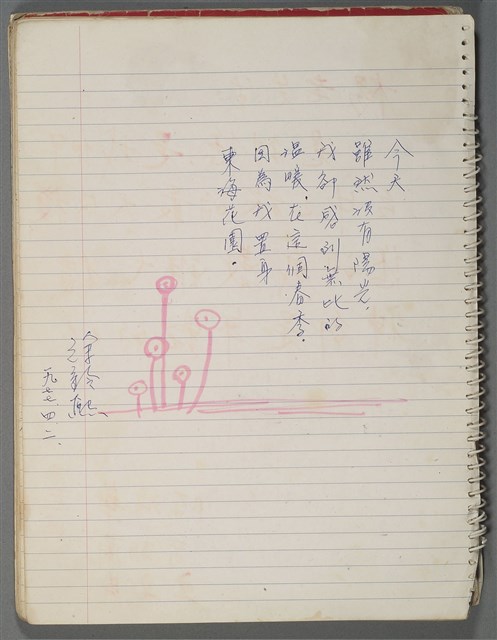 今天
雖然沒有陽光.
我卻感到無比的
溫暖.在這個春季.
因為我置身
東海花園.
一九七七.四.二.